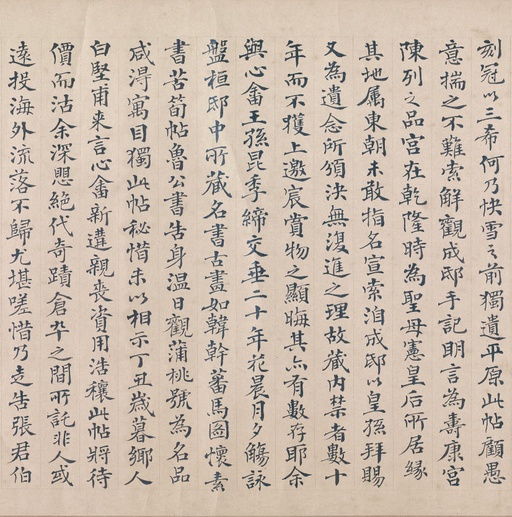 刻冠以三希何乃快雪之前獨遺平原此帖顧愚
意揣之不難索解觀成邸手記明言為壽康宮
陳列之品宮在乾隆時為聖母憲皇后所居緣
其地屬東朝未敢指名宣索洎成邸以皇孫拜賜
又為遺念所頒決無復進之理故藏內禁者數十
年而不獲上邀宸賞物之顯晦其亦有數存耶余
與心畬王孫昆季締交垂二十年花晨月夕觴詠
盤桓邸中所藏名書古畫如韓幹蕃馬圖懷素
書苦筍帖魯公書告身溫日觀蒲桃號為名品
咸淂寓目獨此帖秘惜未以相示丁丑歲暮鄉人
白堅甫來言心畬新遘親喪資用浩穰此帖將待
價而沽余深愳絕代奇蹟倉卒之間所託非人或
遠投海外流落不歸尤堪嗟惜乃走告張君伯